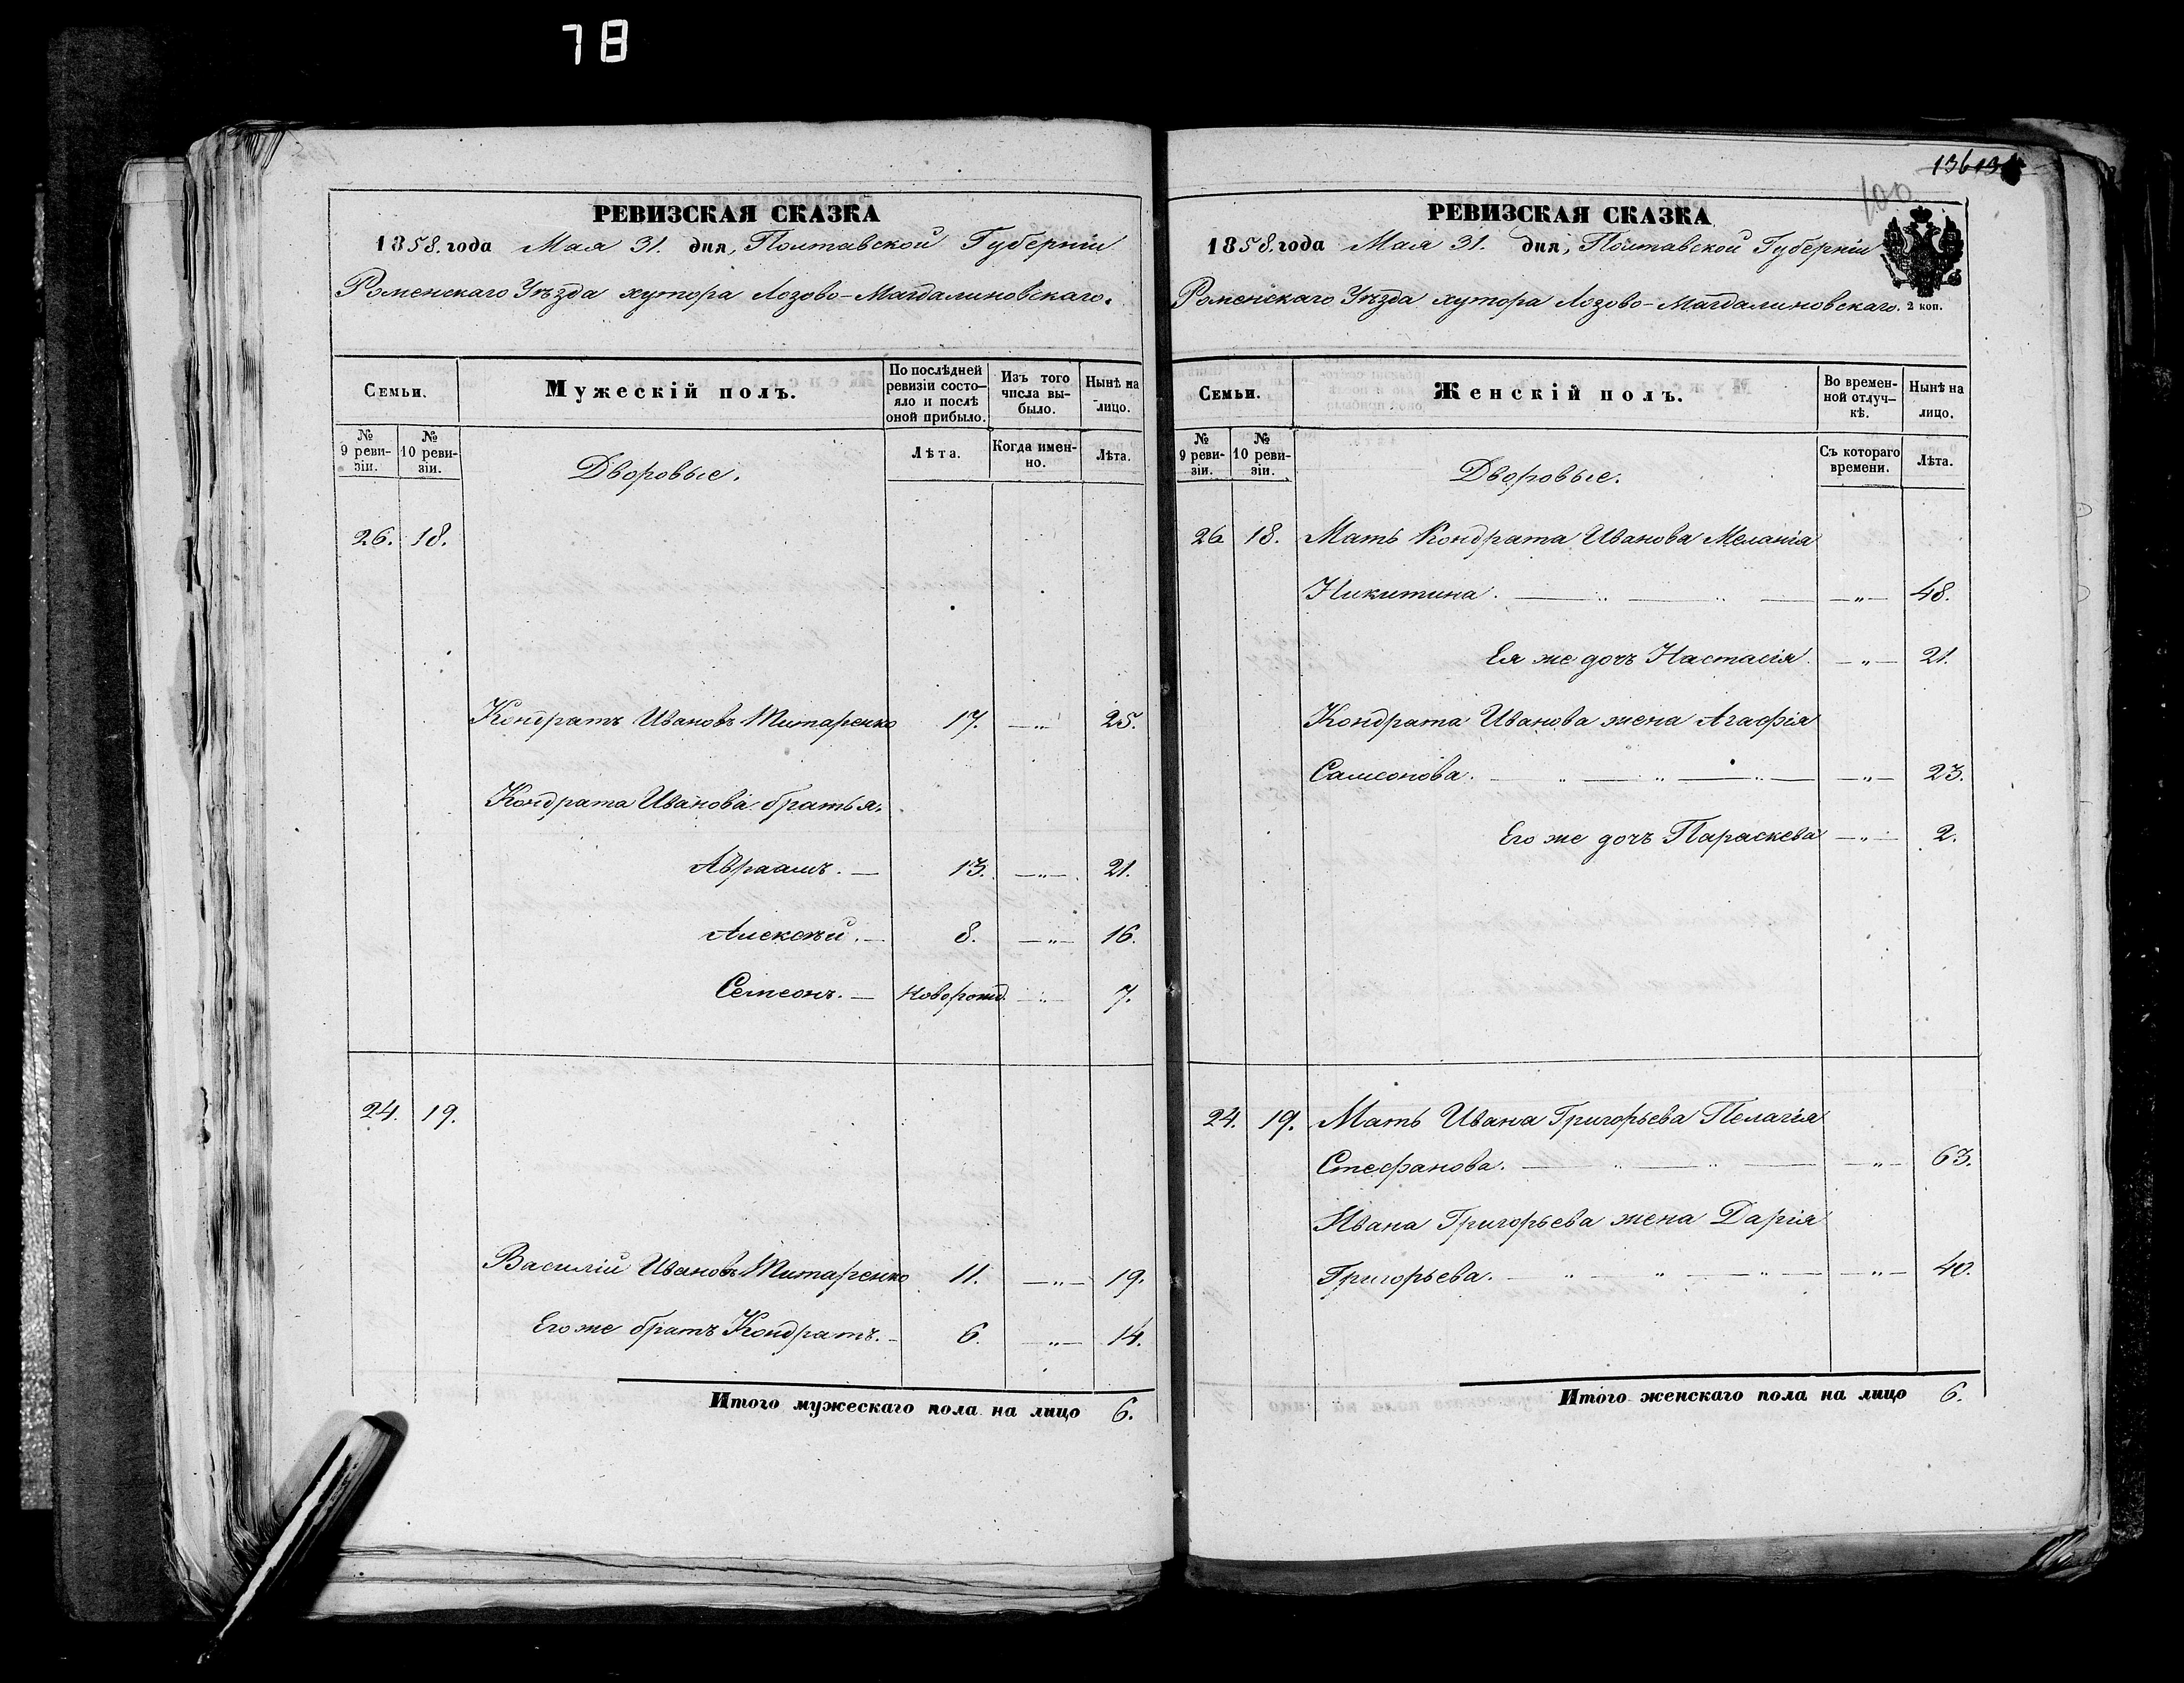 78
РЕВИЗСКАЯ СКАЗКА
1858. года Мая 31. дня, Полтавской Губерніи
Роменскаго Уѣзда хутора Лозово-Магдалиновскаго.
Семьи.
Мужескій полъ.
По послѣдней ревизіи состояло и послѣ оной прибыло.
Изъ того числа выбыло.
Нынѣ на лицо.
№ 9 ревизіи.
№ 10 ревизіи.
Дворовые.
Лѣта.
Когда именно.
Лѣта.
26. 18.
Кондратъ Ивановъ Титаренко 17. —„— 25.
Кондрата Иванова братья.
Авраамъ. — 13. —„— 21.
Алексѣй. — 8. —„— 16.
Семеонъ. — Новорожд. —„— 7.
24. 19.
Василій Ивановъ Титаренко 11. —„— 19.
Его же братъ Кондратъ. — 6. —„— 14.
Итого мужескаго пола на лицо 6.
136
100
РЕВИЗСКАЯ СКАЗКА
1858. года Мая 31. дня, Полтавской Губерніи
Роменскаго Уѣзда хутора Лозово-Магдалиновскаго. 2 коп.
Семьи.
Женскій полъ.
Во временной отлучкѣ.
Нынѣ на лицо.
№ 9 ревизіи.
№ 10 ревизіи.
Дворовые.
Съ котораго времени.
Лѣта.
26 18. Мать Кондрата Иванова Меланія
Никитина. —„— 48.
Ея же дочь Настасія. —„— 21.
Кондрата Иванова жена Агафія
Самсонова. —„— 23.
Его же дочь Параскева —„— 2.
24. 19. Мать Ивана Григорьева Пелагія
Стефанова. —„— 63.
Ивана Григорьева жена Дарія
Григорьева. —„— 40.
Итого женскаго пола на лицо 6.